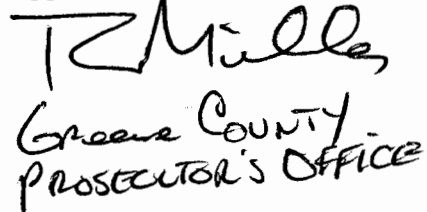 R Miller
Greene COUNTY
PROSECUTOR'S OFFICE